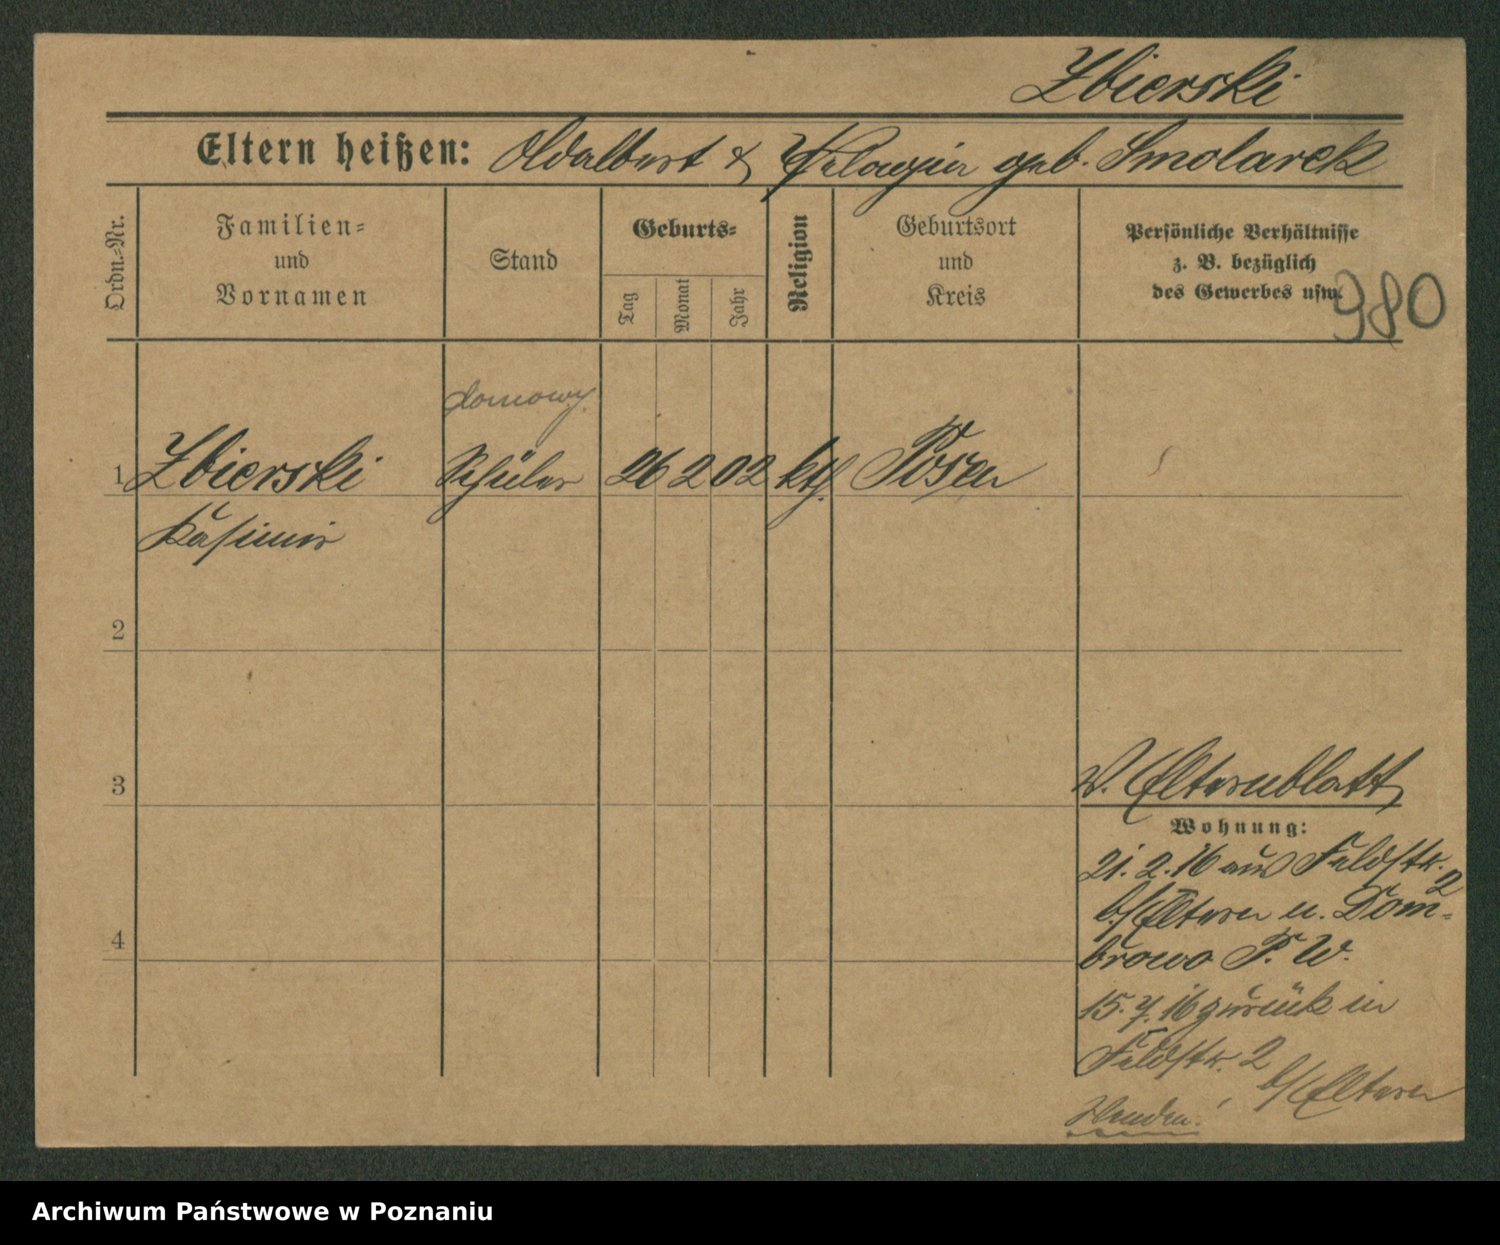 Zbierski
Eltern heißen: Adalbert & Pelagia geb. Smolarek
Ordn.-Nr.
Familien- und Vornamen
Stand
Geburts-
Tag
Monat
Jahr
Religion
Geburtsort und Kreis
Persönliche Verhältnisse
z. B. bezüglich
des Gewerbes usw.
980
domowy
1 Zbierski Schüler 26 2 02 kth. Posen
Kasimir
2
3
v. Elternblatt
Wohnung:
21. 2. 16 aus Feldstr. 2
b/Eltern n. Dom-
browo P. W.
4
15. 7. 16 zurück in
Feldstr. 2
b/Eltern
Wenden!
Archiwum Państwowe w Poznaniu